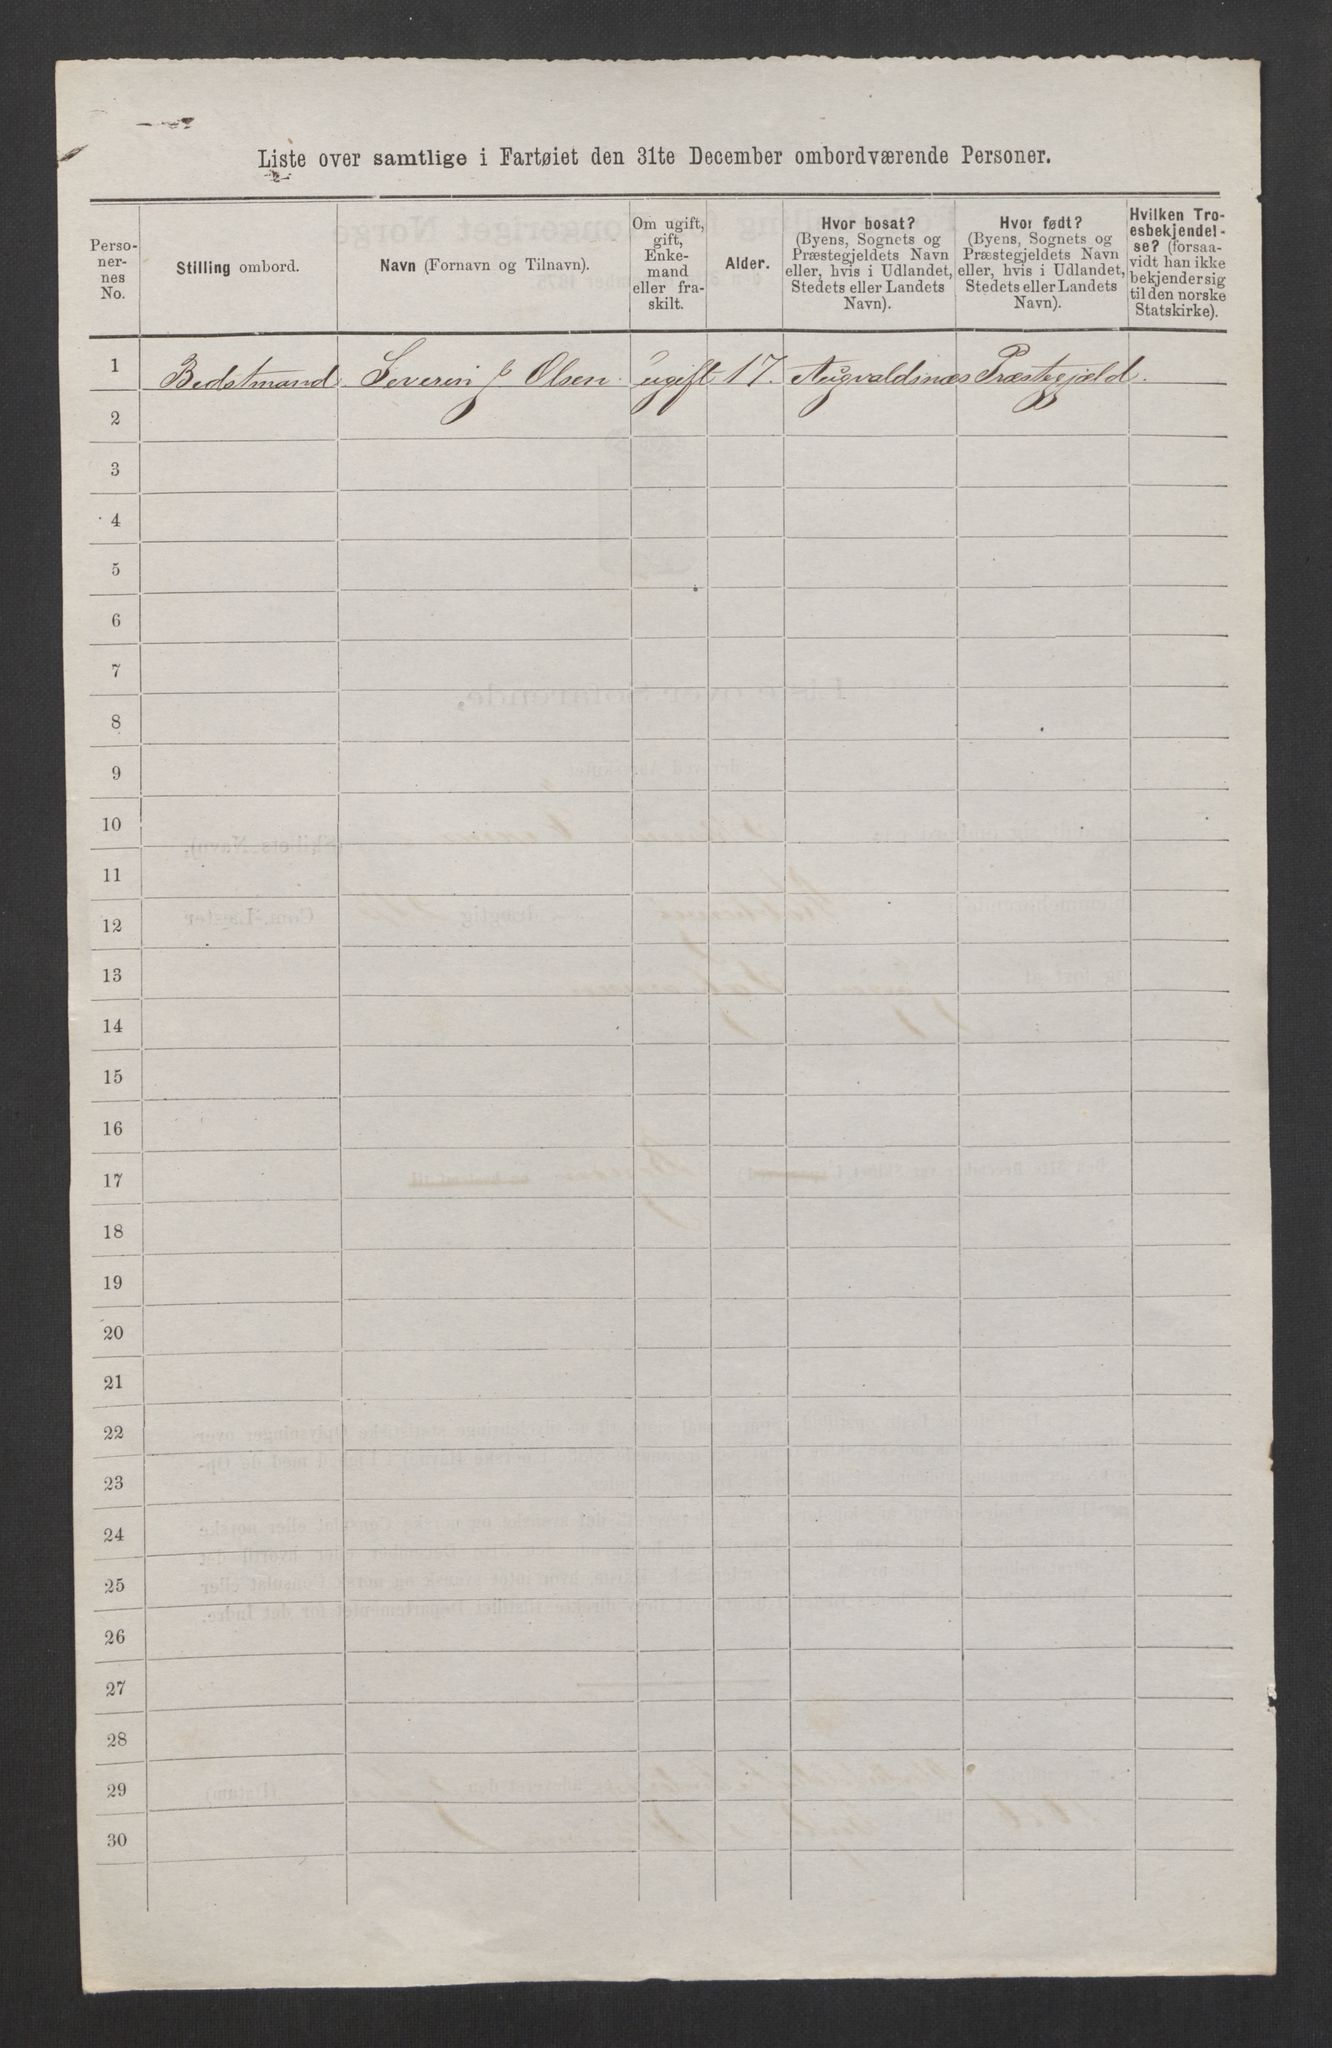 Liste over samtlige i Fartøiet den 31te December ombordværende Personer.
Perso-
ner-
nes
No.
Stilling ombord.
Navn (Fornavn og Tilnavn).
Om ugift,
gift,
Enke-
mand
eller fra-
skilt.
Alder.
Hvor bosat?
(Byens, Sognets og
Præstegjeldets Navn
eller, hvis i Udlandet,
Stedets eller Landets
Navn).
Hvor født?
(Byens, Sognets og
Præstegjeldets Navn
eller, hvis i Udlandet,
Stedets eller Landets
Navn).
Hvilken Tro-
esbekjendel-
se? (forsaa-
vidt han ikke
bekjender sig
til den norske
Statskirke).
1 Bedstmand Severin Olsen ugift 17. Augvaldsnæs Præstegjæld.
2
3
4
5
6
7
8
9
10
11
12
13
14
15
16
17
18
19
20
21
22
23
24
25
26
27
28
29
30